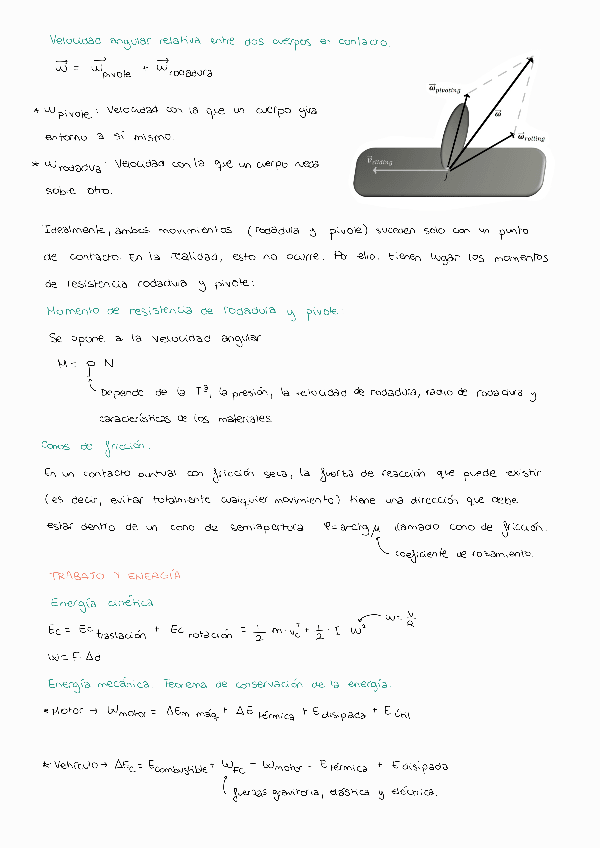 Velocidad angular relativa entre dos cuerpos en contacto.
ω = ω pivote + ω rodadura
ω pivoting
ω
ω rolling
v sliding
J
* ω pivote: Velocidad con la que un cuerpo gira
entorno a sí mismo
* ω rodadura: Velocidad con la que un cuerpo rueda
sobre otro.
Idealmente, ambos movimientos (rodadura y pivote) suceden solo con un punto
de contacto. En la realidad, esto no ocurre. Por ello, tienen lugar los momentos
de resistencia rodadura y pivote:
Momento de resistencia de rodadura y pivote.
Se opone a la velocidad angular
M = ρ N
Depende de la Tª, la presión, la velocidad de rodadura, radio de rodadura y
características de los materiales
Conos de fricción.
En un contacto puntual con fricción seca, la fuerza de reacción que puede existir
(es decir, evitar totalmente cualquier movimiento) tiene una dirección que debe
estar dentro de un cono de semiapertura φ=arctg μ llamado cono de fricción.
coeficiente de rozamiento.
TRABAJO Y ENERGÍA
Energía cinética
Ec = Ec traslación + Ec rotación = 1/2 · m · v_c² + 1/2 · I · ω² ω = v/R
W = F · Δd
Energía mecánica. Teorema de conservación de la energía.
* Motor → W motor = ΔEm máq + ΔE térmica + E disipada + E útil
* Vehículo → ΔEc = E combustible = W FC - W motor - E térmica + E disipada
fuerzas gravitoria, elástica y eléctrica.